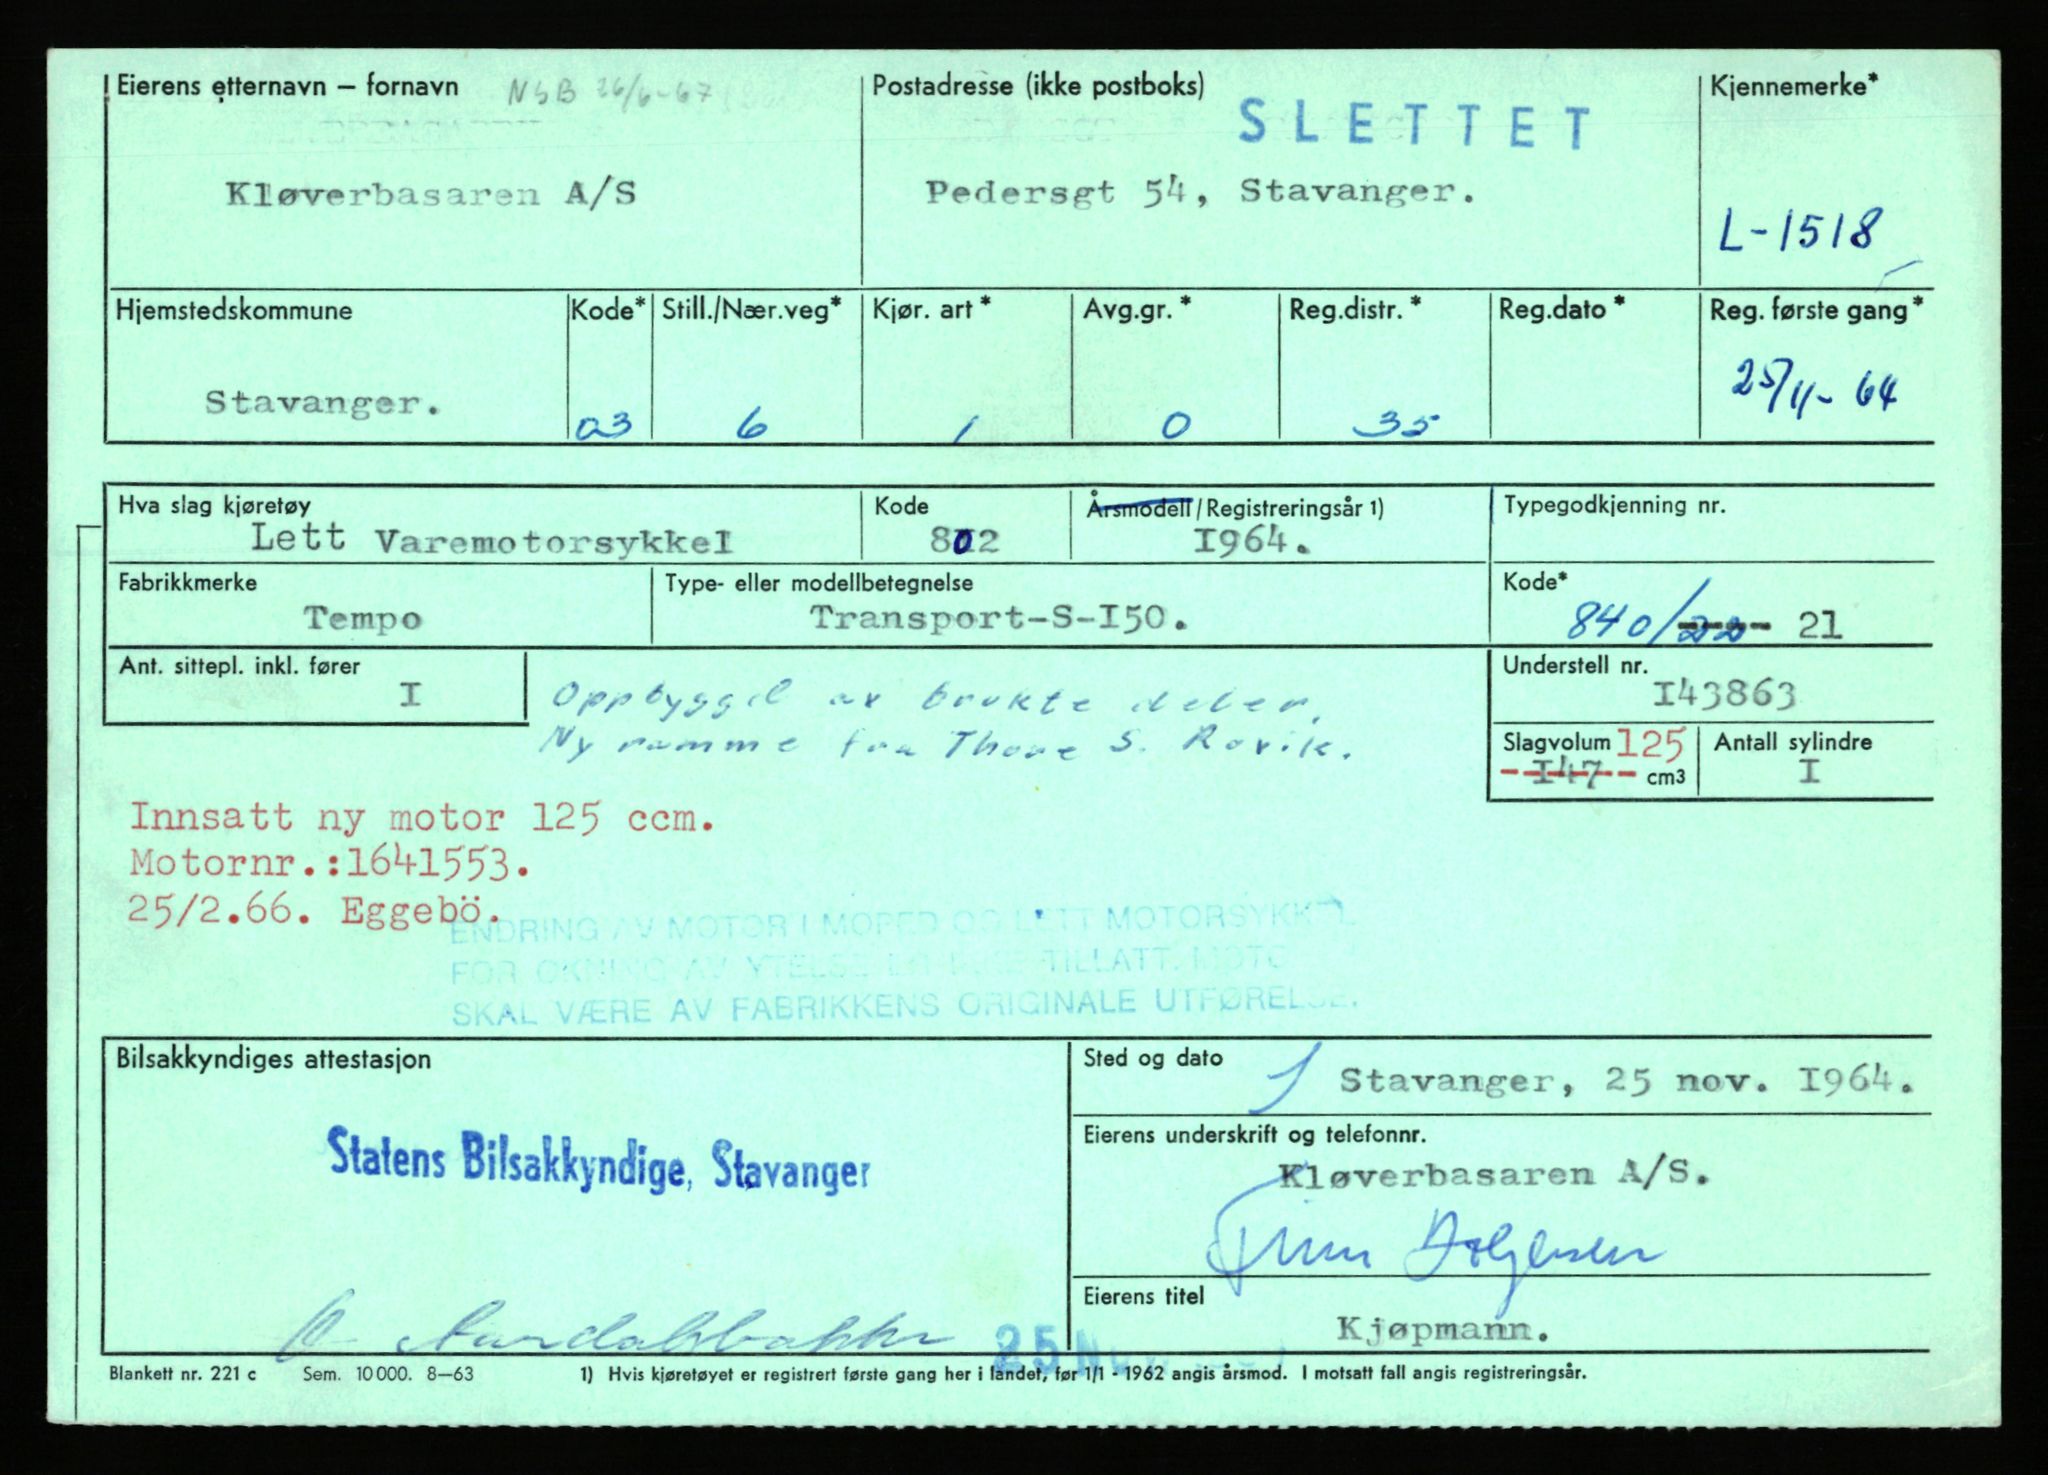 Eierens etternavn – fornavn NSB 26/6-67
Postadresse (ikke postboks)
Kjennemerke*
SLETTET
Kløverbasaren A/S
Pedersgt 54, Stavanger.
L-1518
Hjemstedskommune
Kode*
Still./Nær.veg*
Kjør. art *
Avg.gr. *
Reg.distr. *
Reg.dato *
Reg. første gang*
Stavanger.
03
6
1
0
35
25/11-64
Hva slag kjøretøy
Lett Varemotorsykkel
Kode
802
Årsmodell/Registreringsår 1)
1964.
Typegodkjenning nr.
Fabrikkmerke
Tempo
Type- eller modellbetegnelse
Transport-S-I50.
Kode*
840/22 21
Ant. sittepl. inkl. fører
I
Oppbyggd av brukte deler.
Ny ramme fra Thore S. Rovik.
Understell nr.
I43863
Slagvolum 125
I47 cm3
Antall sylindre
I
Innsatt ny motor 125 ccm.
Motornr.:1641553.
25/2.66. Eggebö.
ENDRING AV MOTOR I MOPED OG LETT MOTORSYKKEL
FOR ØKNING AV YTELSE ER IKKE TILLATT. MOTO
SKAL VÆRE AV FABRIKKENS ORIGINALE UTFØRELSE.
Bilsakkyndiges attestasjon
Statens Bilsakkyndige, Stavanger
Sted og dato
Stavanger, 25 nov. I964.
Eierens underskrift og telefonnr.
Kløverbasaren A/S.
Finn
Eierens titel
Kjøpmann.
25 N
Blankett nr. 221 c Sem. 10000. 8–63 1) Hvis kjøretøyet er registrert første gang her i landet, før 1/1 - 1962 angis årsmod. I motsatt fall angis registreringsår.